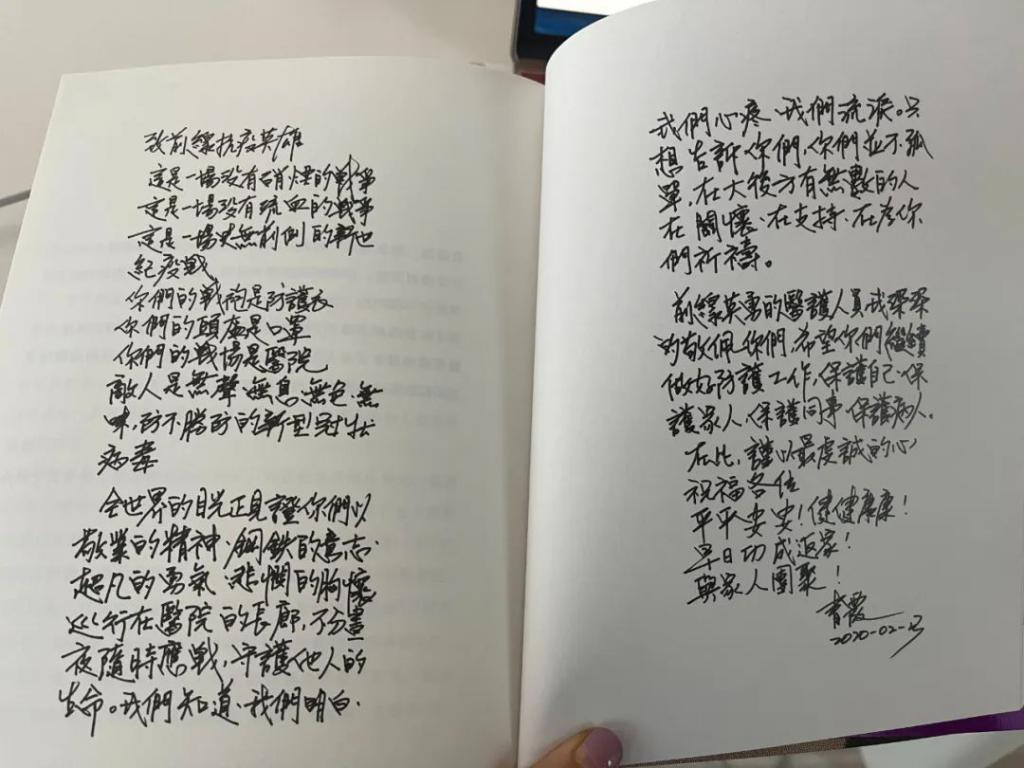 致前線抗疫英雄
這是一場没有硝煙的戰爭
這是一場没有流血的戰爭
這是一場史無前例的新世
紀疫戰
你們的戰袍是防護衣
你們的頭盔是口罩
你們的戰場是醫院
敵人是無聲、無息、無色、無
味,防不勝防的新型冠狀
病毒
全世界的目光正見證你們以
敬業的精神、鋼鐵的意志、
超凡的勇氣、悲憫的胸懷
逆行在醫院的長廊,不分晝
夜隨時應戰,守護他人的
生命。我們知道、我們明白、
我們心疼、我們流淚。只
想告訴你們,你們並不孤
單,在大後方有無數的人
在關懷、在支持、在為你
們祈禱。
前線英勇的醫護人員,我深深
的敬佩你們,希望你們繼續
做好防護工作,保護自己、保
護家人、保護同事、保護病人。
在此,謹以最虔誠的心
祝福各位
平平安安!健健康康!
早日功成返家!
與家人團聚!
青霞
2020-02-